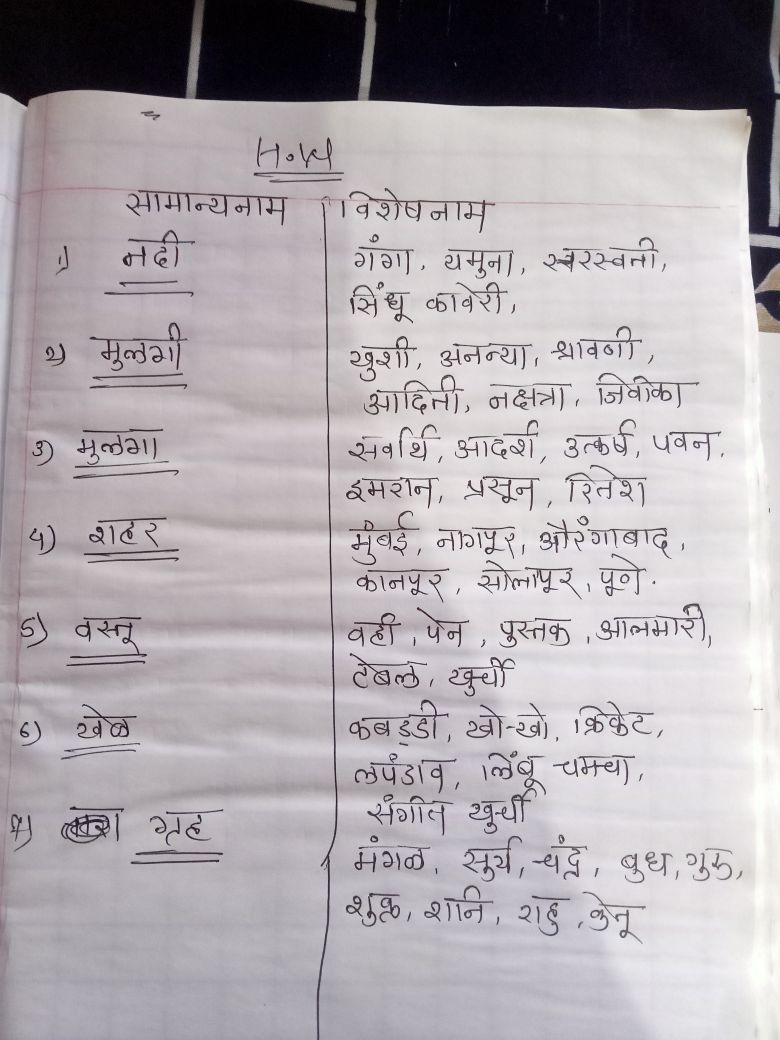 H.W
सामान्यनाम विशेषनाम
1) नदी गंगा, यमुना, स्वरस्वती,
सिंधू कावेरी,
२) मुलगी खुशी, अनन्या, श्रावणी,
आदिती, नक्षत्रा, जिवीका
३) मुलगा सर्वार्थ, आदर्श, उत्कर्ष, पवन,
इमरान, प्रसून, रितेश
4) शहर मुंबई, नागपूर, औरंगाबाद,
कानपूर, सोलापूर, पूणे.
5) वस्तू वही, पेन, पुस्तक, आलमारी,
टेबल, खुर्ची
6) खेळ कबड्डी, खो-खो, क्रिकेट,
लपंडाव, लिंबू चमचा,
संगीत खुर्ची
7) ग्रह
मंगळ, सुर्य, चंद्र, बुध, गुरू,
शुक्र, शनि, राहु, केतू